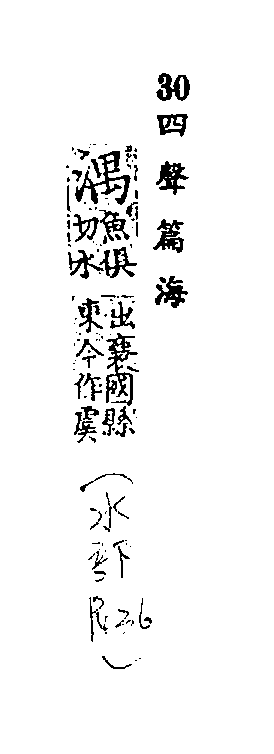 30 四聲篇海
湡
魚俱
切水
出襄國縣
東今作虞
(水部
P.36
)